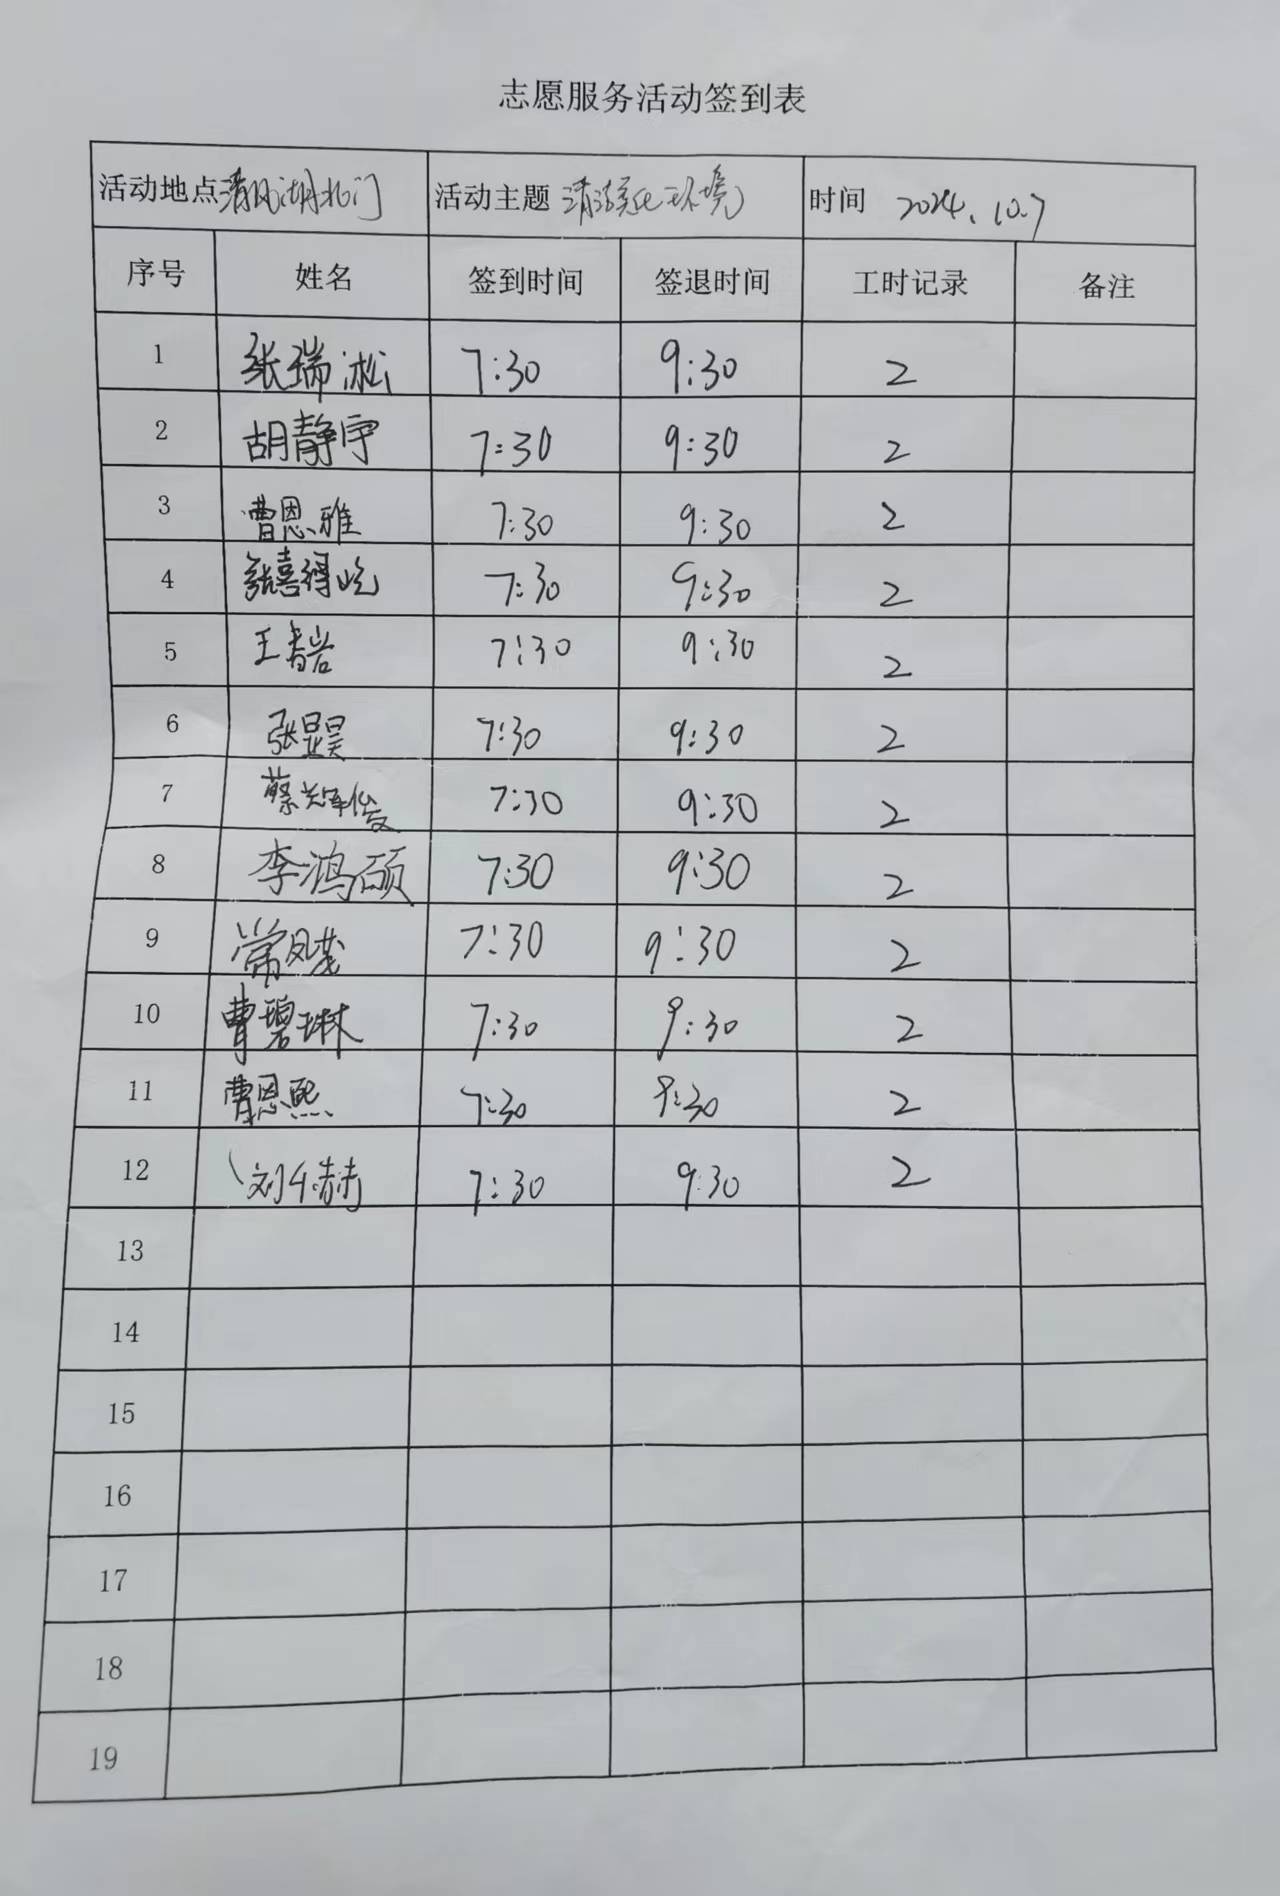 志愿服务活动签到表
活动地点 清风湖北门 活动主题 清洁美化环境 时间 2024.10.7
序号 姓名 签到时间 签退时间 工时记录 备注
1 张瑞淞 7:30 9:30 2
2 胡静宇 7:30 9:30 2
3 曹恩雅 7:30 9:30 2
4 张喜得屹 7:30 9:30 2
5 王春岩 7:30 9:30 2
6 张显昊 7:30 9:30 2
7 蔡 7:30 9:30 2
8 李鸿硕 7:30 9:30 2
9 常凤茂 7:30 9:30 2
10 曹碧琳 7:30 9:30 2
11 曹恩熙 7:30 9:30 2
12 刘千赫 7:30 9:30 2
13
14
15
16
17
18
19